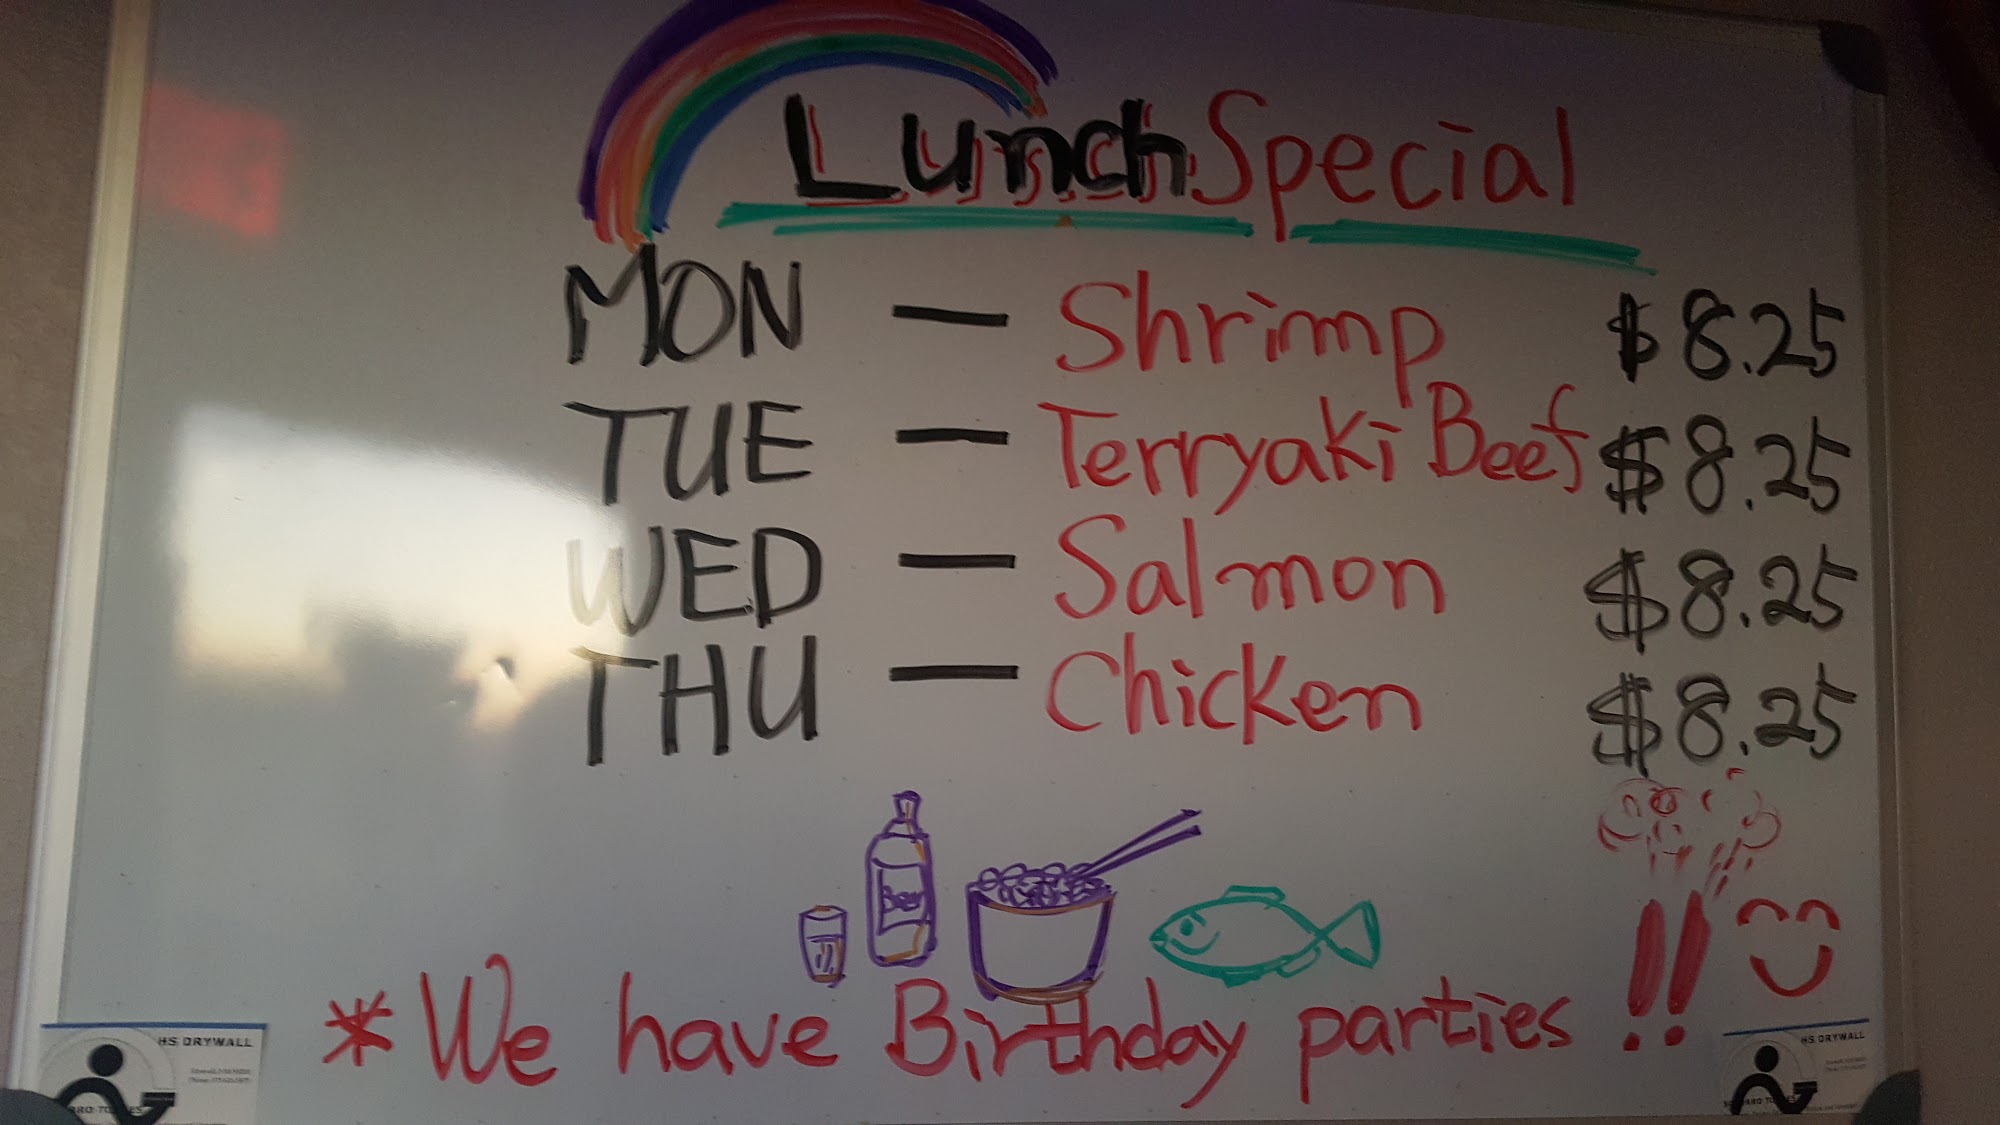 Lunch Special
MON — Shrimp $8.25
TUE — Terryaki Beef $8.25
WED — Salmon $8.25
THU — Chicken $8.25
Beer
* We have Birthday parties !!
HS DRYWALL
HS DRYWALL